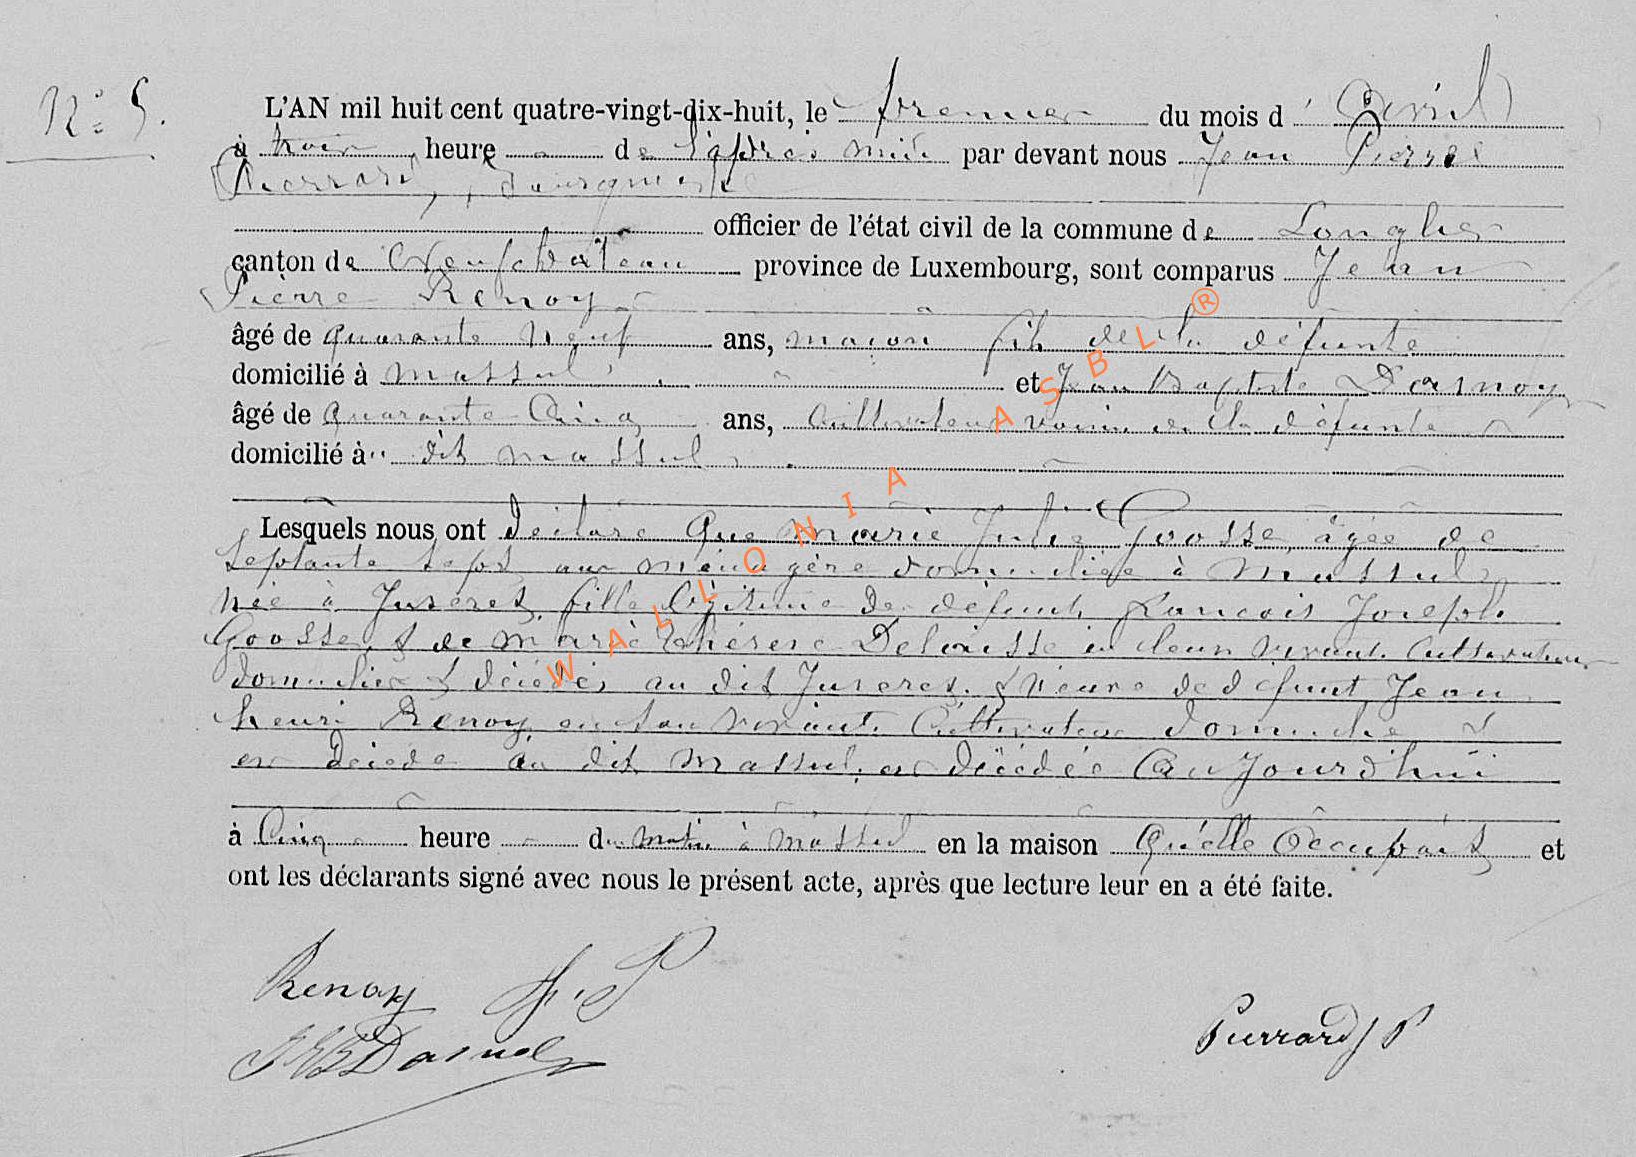 N° 5.
L'AN mil huit cent quatre-vingt-dix-huit, le premier du mois d' Avril
à trois heure de l'après midi par devant nous Jean Pierre
Pierrard, Bourgmestre
officier de l'état civil de la commune de Longlier
canton de Neufchâteau province de Luxembourg, sont comparus Jean
Pierre Renoy
âgé de quarante neuf ans, maçon fils de la défunte
domicilié à Massul et Jean Baptiste Dasnoy
âgé de quarante cinq ans, cultivateur voisin de la défunte
domicilié à dit Massul
Lesquels nous ont déclaré que Marie Julie Goosse, âgée de
septante sept ans ménagère domiciliée à Massul
née à Juseret, fille légitime de défunts François Joseph
Goosse & de Marie Thérèse en leur vivant cultivateurs
domiciliés & décédés au dit Juseret, & veuve de défunt Jean
henri Renoy, en son vivant cultivateur domicilié &
décédé au dit Massul, est décédée aujourd'hui
à cinq heure du matin à Massul en la maison qu'elle occupait et
ont les déclarants signé avec nous le présent acte, après que lecture leur en a été faite.
Renoy J. P
JB Dasnoy
Pierrard J P
WALLONIA ASBL ®